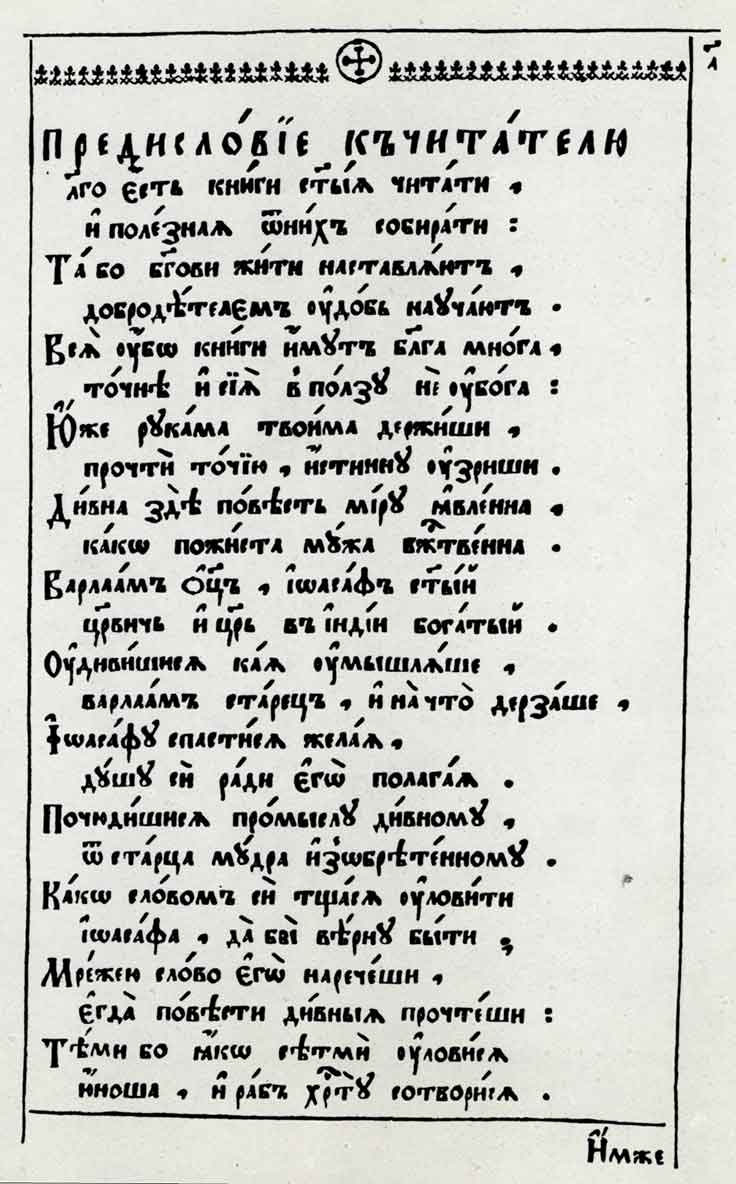 а҃
Предисло́вїе къчита́телю
Бл҃го є҆́сть кни́ги ст҃ы́ѧ чита́ти ,
и҆ поле́знаѧ ѿни́хъ собира́ти :
Та́ бо бг҃ови жи́ти наставлѧ́ютъ ,
добродѣ́телємъ ᲂу҆до́бь научаю́тъ .
Всѧ̀ ᲂу҆́бѡ кни́ги и҆́мутъ бл҃га мно́га ,
то́чнѣ и҆ сїѧ̀ в по́лзу не ᲂу҆бо́га :
Ю҆́же рука́ма твои́ма держи́ши ,
прочтѝ то́чїю , и҆́стинну ᲂу҆́зриши .
Ди́вна здѣ̀ по́вѣсть мі́ру ꙗ҆вле́нна ,
ка́кѡ пожи́ста му́жа бж҃тве́нна .
Варлаа́мъ ѻ҆ц҃ъ , і҆ѡаса́фъ ст҃ы́й
цр҃вичь и҆ цр҃ь въ і҆нді́и бога́тый .
Оу҆диви́шисѧ ка́ѧ ᲂу҆мышлѧ́ше ,
варлаа́мъ ста́рецъ , и҆ на что̀ дерза́ше ,
І҆ѡаса́фу спасти́сѧ жела́ѧ ,
ду́шу сѝ ра́ди є҆гѡ̀ полага́ѧ .
Почюди́шисѧ про́мыслу ди́вному ,
ѿ ста́рца му́дра и҆зѡбрѣте́нному .
Ка́кѡ сло́вомъ сѝ тща́сѧ ᲂу҆лови́ти
і҆ѡаса́фа , да̀ бг҃ѹ вѣ́рну бы́ти ;
Мре́жею сло́во є҆гѡ̀ нарече́ши ,
є҆гда̀ по́вѣсти ди́вныѧ прочте́ши :
Тѣ́ми бо ꙗ҆́кѡ сѣтмѝ ᲂу҆лови́сѧ
ю҆́ноша , и҆ ра́бъ хр҃ту̀ сотвори́сѧ .
И҆́мже